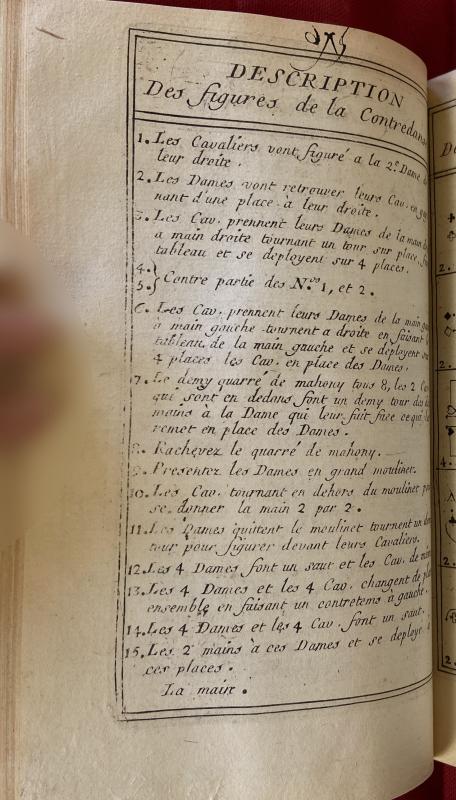 DESCRIPTION
Des figures de la Contredanse
1. Les Cavaliers vont figuré a la 2.e Dame
leur droite.
2. Les Dames vont retrouver leurs Cav. en
nant d'une place à leur droite.
3. Les Cav. prennent leurs Dames de la main
a main droite tournant un tour sur place,
tableau et se deployent sur 4 places.
4.
5. } Contre partie des N.os 1, et 2.
6. Les Cav. prennent leurs Dames de la main
a main gauche tournent a droite en faisant
tableau de la main gauche et se deployent
4 places les Cav. en place des Dames.
7. Le demy quarré de mahony tous 8, les 2
qui sont en dedans font un demy tour des
mains à la Dame qui leur fait face ce qui
remet en place des Dames.
8. Rachevez le quarré de mahony.
9. Presentez les Dames en grand moulinet.
10. Les Cav. tournant en dehors du moulinet
se donner la main 2 par 2.
11. Les Dames quittent le moulinet tournent un
tour pour figurer devant leurs Cavaliers.
12. Les 4 Dames font un saut et les Cav. de
13. Les 4 Dames et les 4 Cav. changent de
ensemble en faisant un contretems à gauche.
14. Les 4 Dames et les 4 Cav. font un saut.
15. Les 2 mains à ces Dames et se deploye
ces places.
La main.